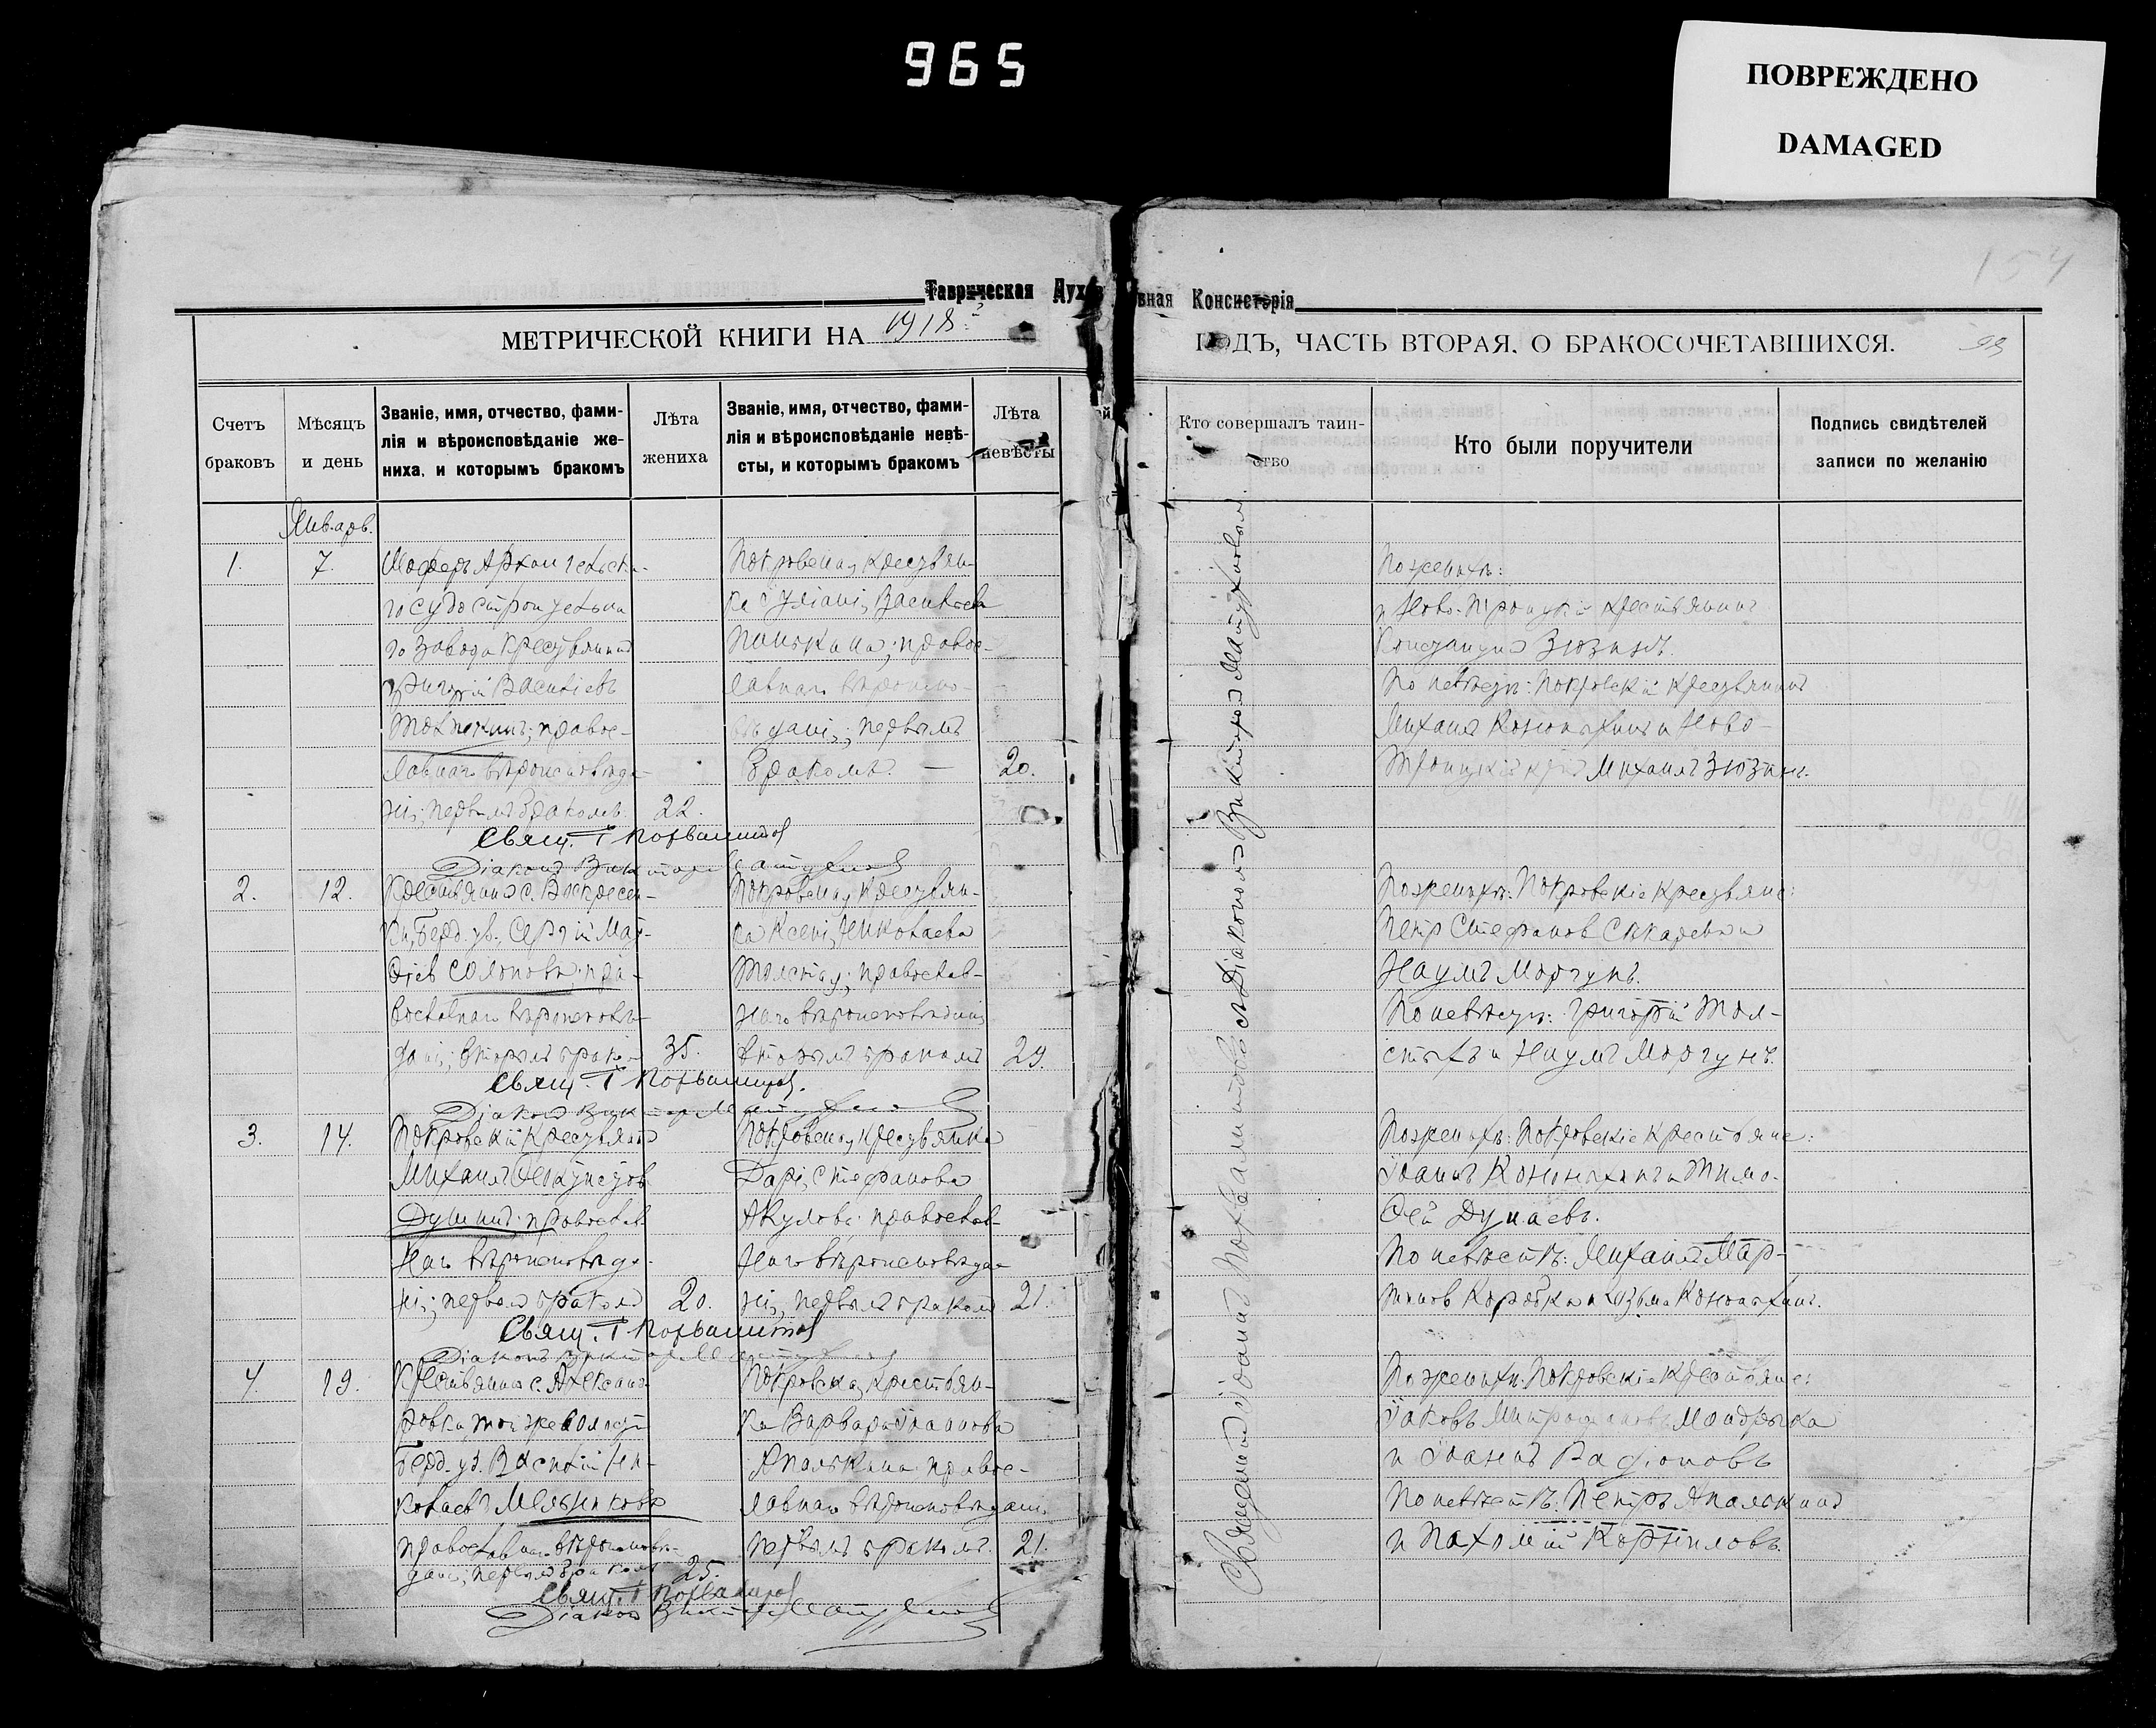 965
ПОВРЕЖДЕНО
DAMAGED
154
Таврическая Дух
вная Консисторія
МЕТРИЧЕСКОЙ КНИГИ НА 1918
ГОДЪ, ЧАСТЬ ВТОРАЯ, О БРАКОСОЧЕТАВШИХСЯ.
99
Счетъ браковъ
Мѣсяцъ и день
Званіе, имя, отчество, фами-
лія и вѣроисповѣданіе же-
ниха, и которымъ бракомъ
Лѣта жениха
Званіе, имя, отчество, фами-
лія и вѣроисповѣданіе невѣ-
сты, и которымъ бракомъ
Лѣта невѣсты
Кто совершалъ таин-
ство
Кто были поручители
Подпись свидѣтелей
записи по желанію
Январь.
1.
7.
Шоферъ Архангельска-
го судостроительна
го завода крестьянинъ
Григорій Василіевъ
православ-
лавнаго вѣроисповѣда-
нія, первымъ бракомъ.
22.
Покровская крестьян-
ка Іуліанія Васильева
Панькина; правос-
лавнаго вѣроиспо-
вѣданія; первымъ
бракомъ. —
20.
По женихѣ:
Ново-Троицкій крестьянинъ
Константинъ Зюзинъ.
По невѣстѣ: Покровскій крестьянинъ
Михаилъ Кононыхинъ и Ново-
Троицкій Михаилъ Зюзинъ.
Свящ. І
Діаконъ Викторъ
2.
12.
Крестьянинъ с. Воскресен-
ки, Берд. у., Сергій Мат-
ѳіевъ Солоповъ; пра-
вославнаго вѣроисповѣ-
данія; вторымъ брако-
35.
Покровская крестьян-
ка Ксенія Николаева
Толстых; православ-
наго вѣроисповѣданія
вторымъ бракомъ
29.
По женихѣ: Покровскіе крестьяне:
Петръ Стефановъ
Наумъ Моргунъ.
По невѣстѣ: Григорій Тол-
стыхъ и Наумъ Моргунъ.
Свящ. І
Діаконъ Викторъ
3.
14.
Покровскій крестьянинъ
Михаилъ
Душинъ; православ-
наго вѣроисповѣда-
нія; первымъ бракомъ
20.
Покровская крестьянка
Дарія Стефанова
Акулова; православ-
наго вѣроисповѣда-
нія, первымъ бракомъ
21.
По женихѣ: Покровскіе крестьяне:
Іоаннъ Кононыхинъ и Тимо-
ѳей Дунаевъ.
По невѣстѣ: Михаилъ Мар-
тиновъ Коробка и Кузьма Кононыхинъ.
Свящ. І
Діаконъ Викторъ
4.
19.
Крестьянинъ с. Алексан-
дровки, той же волости
Берд. у. Василій Ни-
колаевъ Мельниковъ
православнаго вѣроисповѣ-
данія, первымъ бракомъ
25.
Покровская крестьян-
ка Варвара Іоаннова
Апалькина правос-
лавнаго вѣроисповѣданія,
первымъ бракомъ.
21.
По женихѣ: Покровскіе крестьяне:
Іаковъ Митрофановъ Мандрыка
и Іоаннъ Родіоновъ
По невѣстѣ: Петръ Апалькинъ
и Пахомій Корниловъ.
Свящ. І
Діаконъ Викторъ
Священникъ Іоаннъ съ Діакономъ Викторомъ